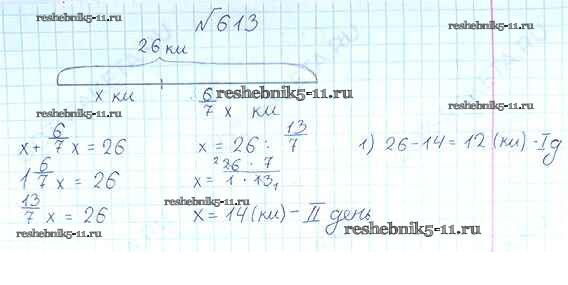 №613
reshebnik5-11.ru reshebnik5-11.ru
26 км
х км 6/7 х км
reshebnik5-11.ru
reshebnik5-11.ru reshebnik5-11.ru
х + 6/7 х = 26 х = 26 : 13/7 1) 26 - 14 = 12 (км) - I д
1 6/7 х = 26 х = ²26 · 7 / 1 · 13₁
reshebnik5-11.ru reshebnik5-11.ru
13/7 х = 26 х = 14 (км) - II день
reshebnik5-11.ru reshebnik5-11.ru